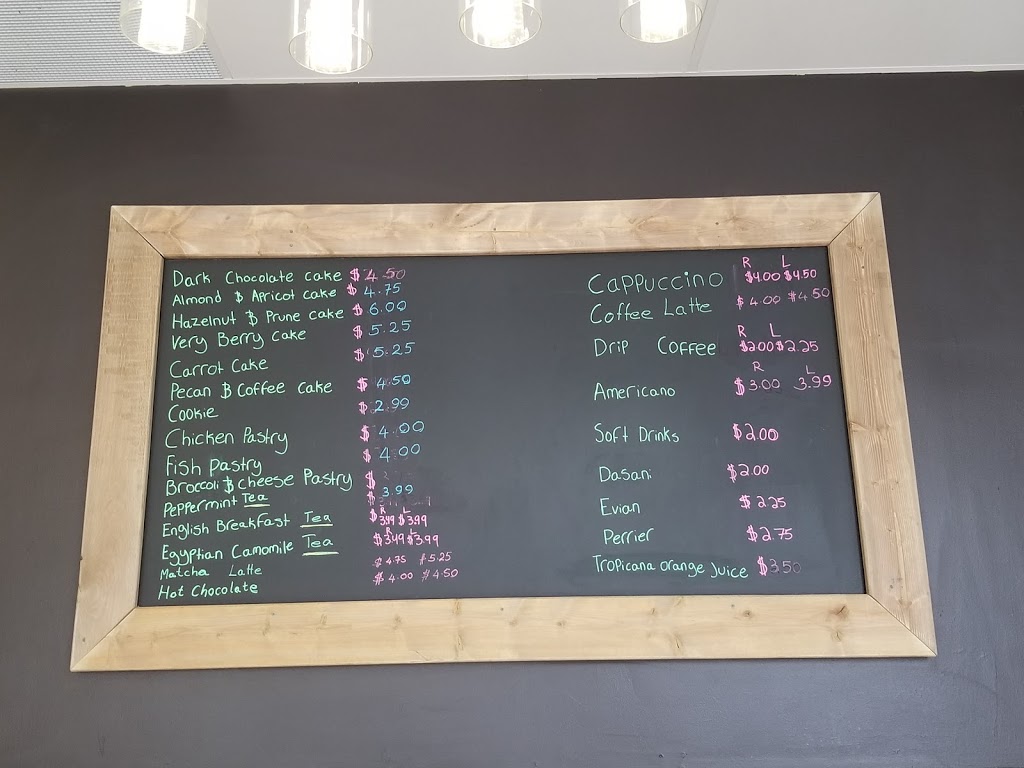 Dark Chocolate cake $4.50
Almond & Apricot cake $4.75
Hazelnut & Prune cake $6.00
Very Berry cake $5.25
Carrot Cake $5.25
Pecan & Coffee cake $4.50
Cookie $2.99
Chicken Pastry $4.00
Fish Pastry $4.00
Broccoli & cheese Pastry $
Peppermint Tea $ 3.99
R L
English Breakfast Tea $3.49 $3.99
R L
Egyptian Camomile Tea $3.49 $3.99
Matcha Latte $4.75 $5.25
Hot Chocolate $4.00 $4.50
R L
Cappuccino $4.00 $4.50
Coffee Latte $4.00 $4.50
R L
Drip Coffee $2.00 $2.25
R L
Americano $3.00 3.99
Soft Drinks $2.00
Dasani $2.00
Evian $2.25
Perrier $2.75
Tropicana orange Juice $3.50